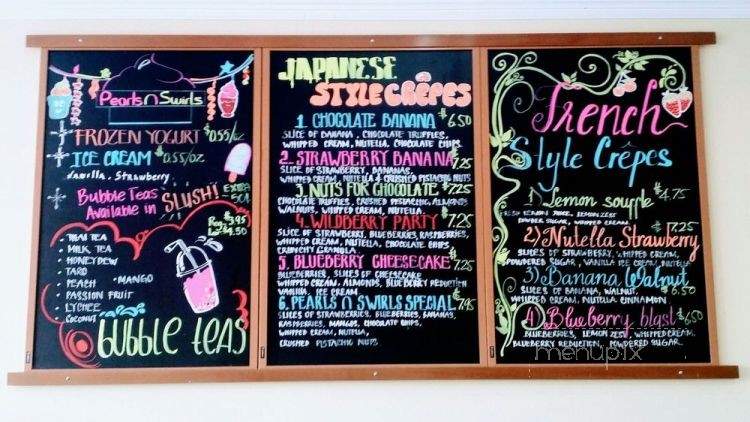 Pearls n Swirls
FROZEN YOGURT $0.55/oz
ICE CREAM $0.55/oz
Vanilla, Strawberry
Bubble Teas
Available in SLUSH! EXTRA 50¢
Reg $3.95
Lg $4.50
THAI TEA
MILK TEA
HONEYDEW
TARO
PEACH
MANGO
PASSION FRUIT
LYCHEE
COCONUT
BUBBLE TEAS
JAPANESE
STYLE CRÊPES
1. CHOCOLATE BANANA $6.50
SLICE OF BANANA, CHOCOLATE TRUFFLES,
WHIPPED CREAM, NUTELLA, CHOCOLATE CHIPS
2. STRAWBERRY BANANA 7.25
SLICE OF STRAWBERRY, BANANAS,
WHIPPED CREAM, NUTELLA & CRUSHED PISTACHIO NUTS
3. NUTS FOR CHOCOLATE $7.25
CHOCOLATE TRUFFLES, CRUSHED PISTACHIO, ALMONDS,
WALNUTS, WHIPPED CREAM, NUTELLA.
4. WILDBERRY PARTY $7.25
SLICE OF STRAWBERRY, BLUEBERRIES, RASPBERRIES,
WHIPPED CREAM, NUTELLA, CHOCOLATE CHIPS,
CRUNCHY GRANOLA
5. BLUEBERRY CHEESECAKE $7.25
BLUEBERRIES, SLICES OF CHEESECAKE
WHIPPED CREAM, ALMONDS, BLUEBERRY REDUCTION
VANILLA ICE CREAM
6. PEARLS N SWIRLS SPECIAL $7.95
SLICES OF STRAWBERRIES, BLUEBERRIES, BANANAS,
RASPBERRIES, MANGOS, CHOCOLATE CHIPS,
WHIPPED CREAM, NUTELLA,
CRUSHED PISTACHIO NUTS
French
Style Crêpes
1) Lemon souffle $4.75
FRESH LEMON JUICE, LEMON ZEST
POWDER SUGAR, WHIPPED CREAM
2) Nutella Strawberry $7.25
SLICES OF STRAWBERRY, WHIPPED CREAM,
POWDERED SUGAR, VANILLA ICE CREAM, NUTELLA
3) Banana Walnut $6.50
SLICES OF BANANA, WALNUT,
WHIPPED CREAM, NUTELLA CINNAMON
4) Blueberry blast $6.50
BLUEBERRIES, LEMON ZEST, WHIPPED CREAM,
BLUEBERRY REDUCTION, POWDERED SUGAR.
menupix